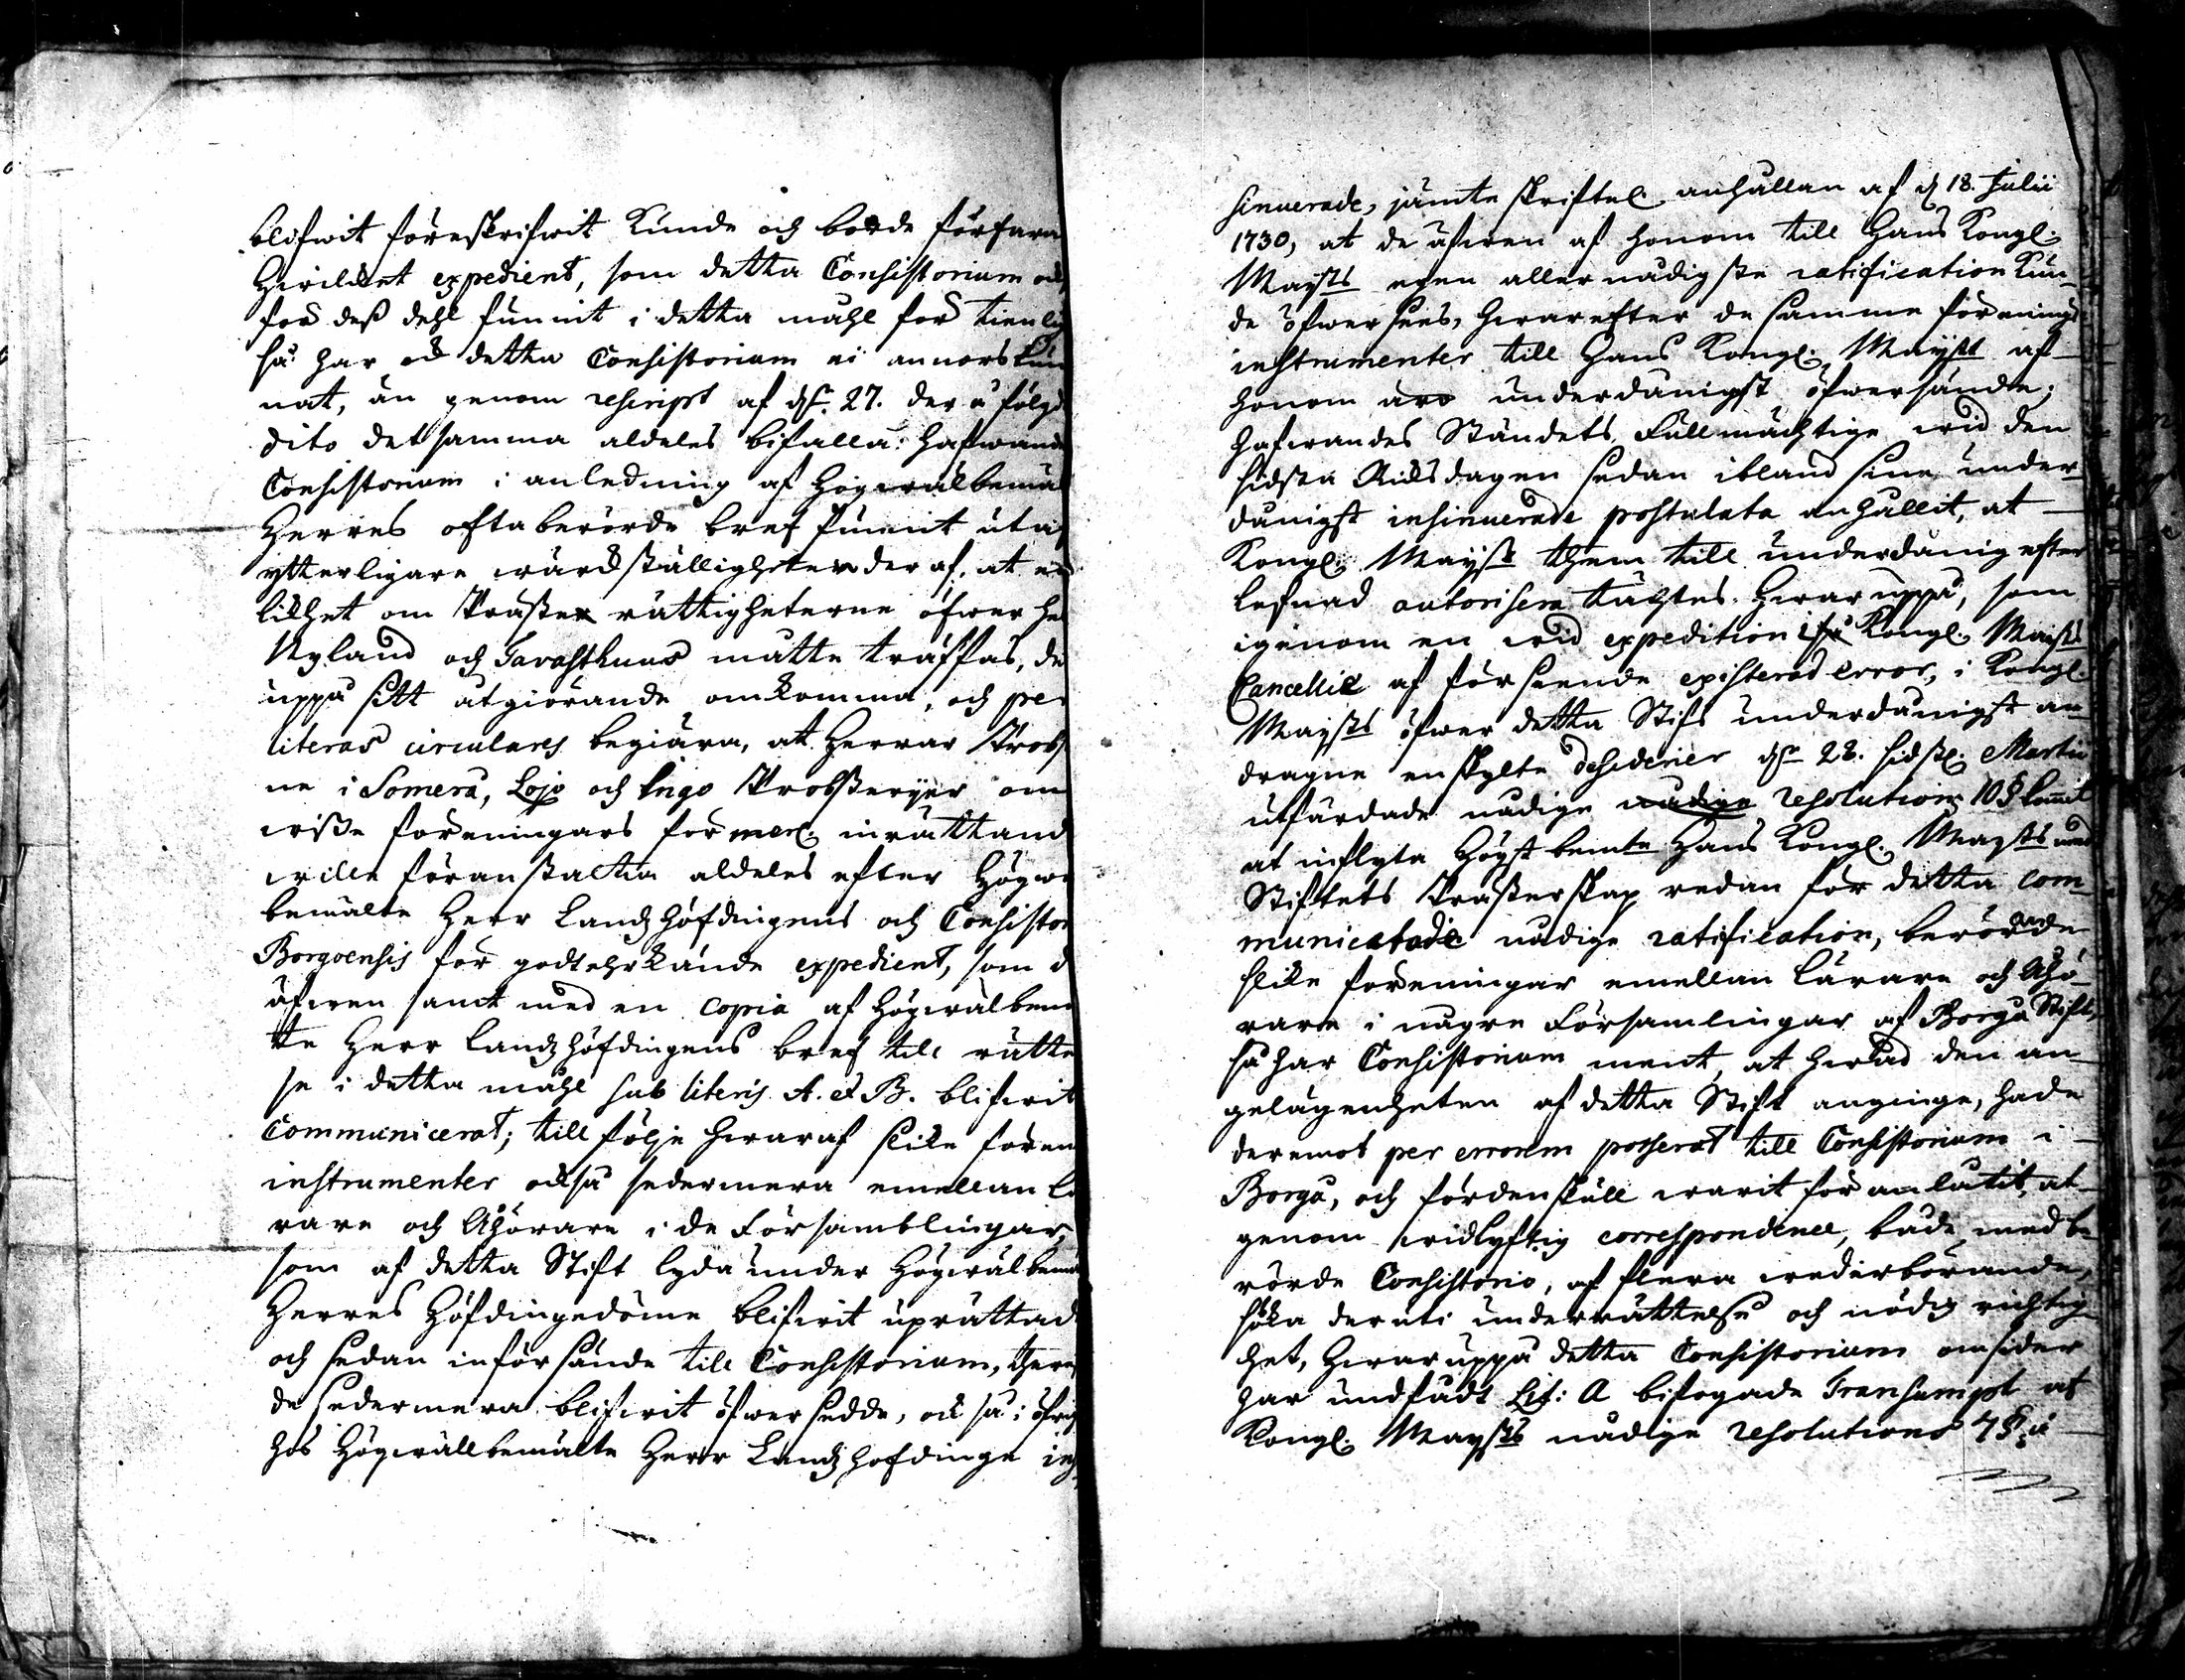 blifwit föreskrifwit kunde och borde förfara
Hwilket expedient, som detta Consistorium ock
for dess dehl funnit i detta mahl for tienlig
så har ock detta Consistorium ei annors kun
nat, än genom rescript af dn 27. der å följd
dito detsamma aldeles bifalla: hafwande
Consistorium i anledning af Högwälbemäl
Herres oftaberörde bref funnit uta
ytterligare wärdställigheten der af, at en
likhet om Präste rättigheterne öfwer he
Nyland och Tavasthuus måtte träffas, de
uppå sitt utgiörande omkomma, och per
literas circulares begiära, at Herrar Probs
ne i Somerå, Lojo och Ingo Prosterijer om
wisse foreningars formerl. inrättand
wille föranstalta aldeles efter Högwä
bemälte Herr Landzhöfdingens och Consistor
Borgoensis for godt ehrkände expedient, som d
äfwen samt med en copia af Högwälbem
te Herr Landzhöfdingens bref till rätte
se i detta mahl sub literis A. et B. blifwit
communicerat; till följe hwaraf slike foren
instrumenter också sedermera emellan lä
rare och Åhörare i de Församblingar,
som af detta Stift lyda under Högwälbem
Herres Höfdingedöme blifwit uprättad
och sedan införsände till Consistorium, there
de sedermera blifwit öfwersedde, och så i öfrig
hos Högwällbemälte Herr Landzhofdinge in
sinuerade, jämte skriftel anhållan af d 18. Julii
1730, at de äfwen af honom till Hans Kongl.
Maysts egen allernådigste ratification kun
de öfwersees, hwarefter de samme förenings
instrumenter till Hans Kongl. Mayst af
honom äro underdånigst öfwersände;
hafwandes Ståndets Fullmächtige wid den
sidsta Riksdagen sedan ibland sine under
dånigst insinuerade postulata anhållit, at
Kongl. Mayst them till underdånig efter
lefnad autorisera tächtes. Hwaruppå, som
igenom en wid expedition i Kongl. Mayst
Cancellie af förseende existerad error, i Kongl.
Maysts öfwer detta Stifs underdånigst an
dragne enskylte desiderier dn 28. sidstl. Martii
utfärdade nådige resolution 10 § kommit
at inflyta Högstbemte Hans Kongl. Maysts med
Stiftets Prästerskap redan för detta com
municerade nådige ratification, berörande
slike föreningar emellan Lärare och Åhö
rare i någre Församlingar af Borgå Stift,
så har Consistorium ment, at hwad den an
gelägenheten af detta Stift anginge, hade
deremot per errorem passerat till Consistorium i
Borgå, och fördenskull warit föranlåtit, at
genom widlyftig correspondence, både med be
rörde Consistorio, af flera wederbörande,
söka deruti underrättelse och nödig richtig
het, Hwaruppå detta Consistorium omsider
har undfådt Lit: A bifogade Transumpt af
Kongl. Maysts nådige resolutions 7 § å